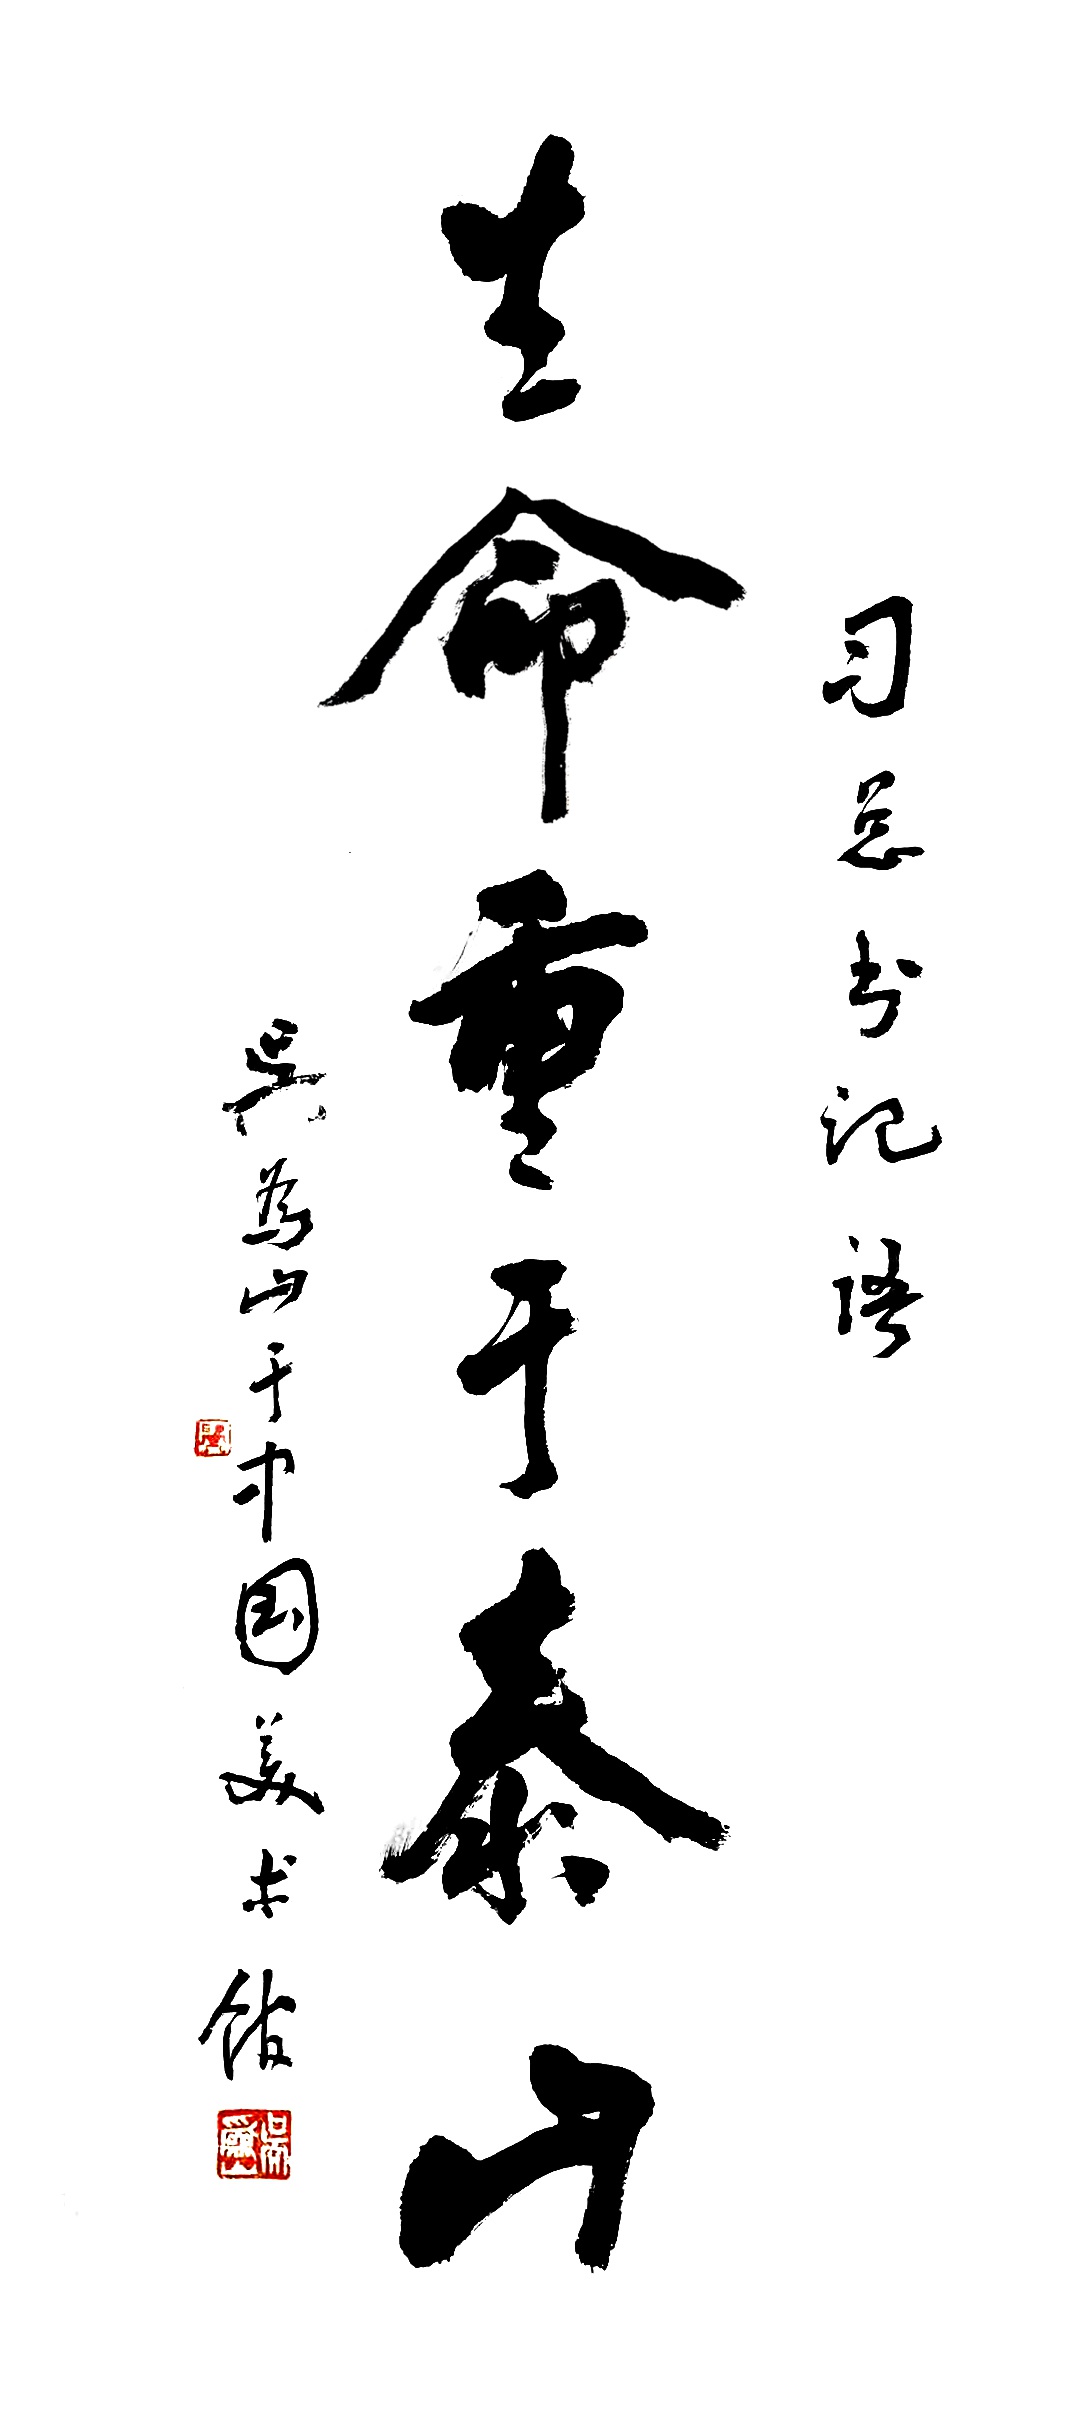 习总书记语
生命重于泰山
吴为山于中国美术馆
吴为山